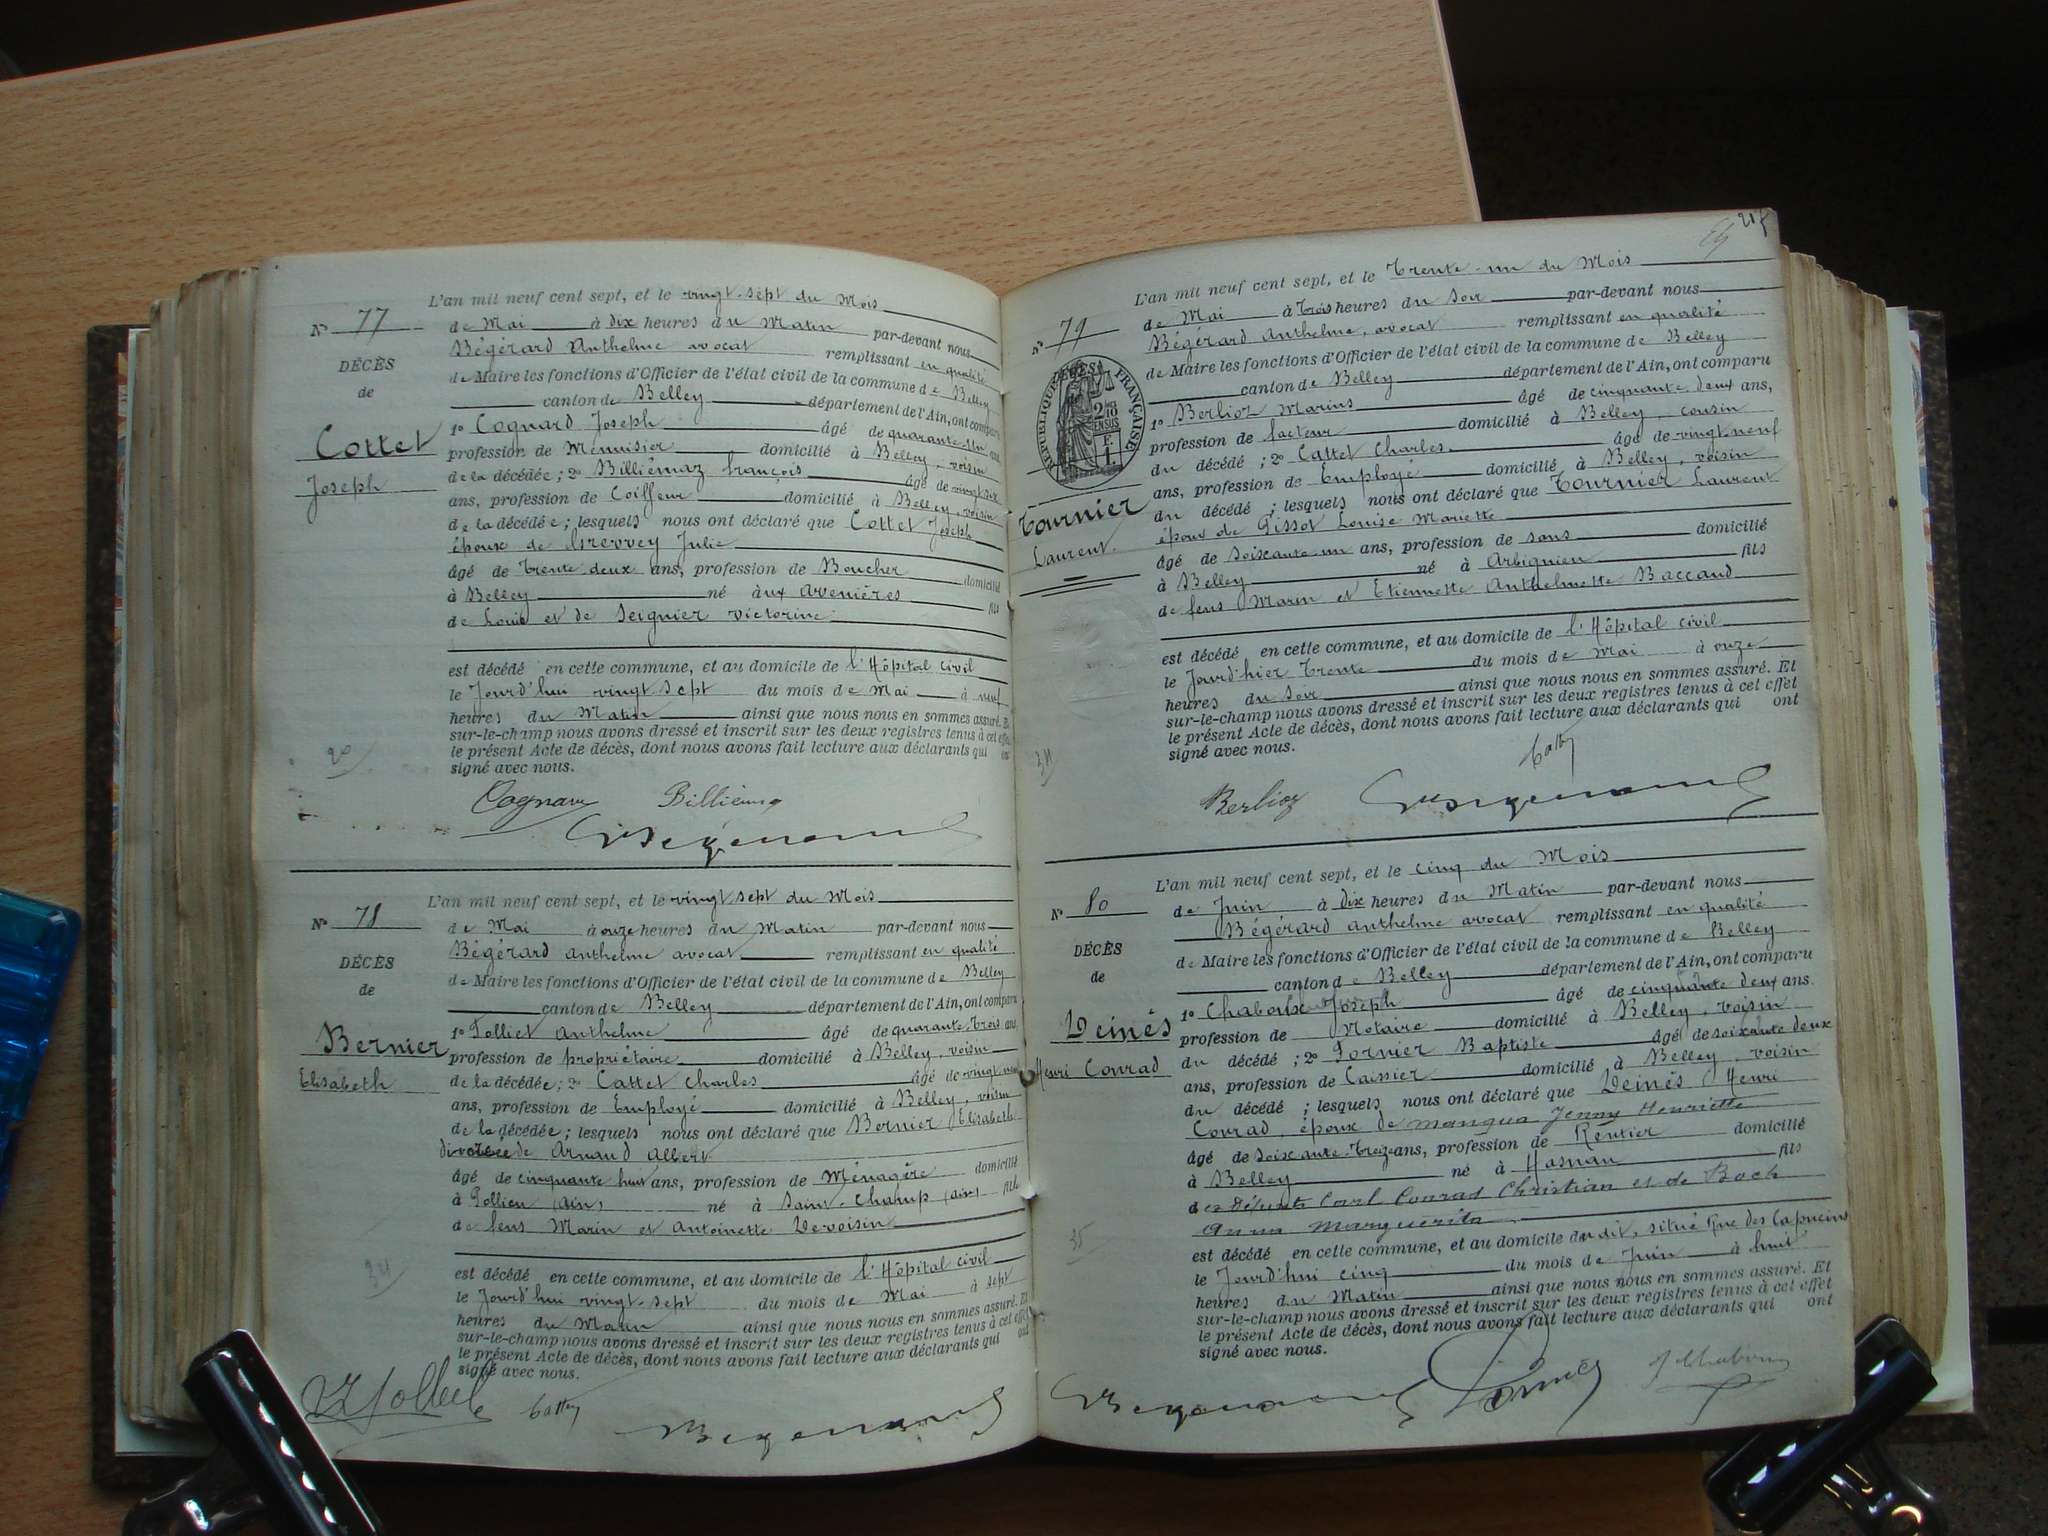 L'an mil neuf cent sept, et le vingt-sept du Mois
N° 77
de Mai à dix heures du Matin par-devant nous
Bégérard Anthelme avocat remplissant en qualité
DÉCÈS
de Maire les fonctions d'Officier de l'état civil de la commune de Belley
de
canton de Belley département de l'Ain, ont comparu
1° Cognard Joseph âgé de quarante-un ans
Cottet
profession de Menuisier domicilié à Belley, voisin
de la décédée; 2° Billiémaz françois âgé de vingt six
Joseph
ans, profession de Coiffeur domicilié à Belley, voisin
de la décédée; lesquels nous ont déclaré que Cottet Joseph
époux de Grevvey Julie
âgé de trente deux ans, profession de Boucher domicilié
à Belley né aux Avenières fils
de Louis et de Seignier victorine
est décédé en cette commune, et au domicile de l'Hôpital civil
le Jourd'hui vingt sept du mois de Mai à neuf
heures du Matin ainsi que nous nous en sommes assuré. Et
sur-le-champ nous avons dressé et inscrit sur les deux registres tenus à cet effet
le présent Acte de décès, dont nous avons fait lecture aux déclarants qui ont
signé avec nous.
Billiémaz
L'an mil neuf cent sept, et le vingt sept du Mois
N° 78
de Mai à onze heures du Matin par-devant nous
Bégérard anthelme avocat remplissant en qualité
DÉCÈS
de Maire les fonctions d'Officier de l'état civil de la commune de Belley
de
canton de Belley département de l'Ain, ont comparu
1° Tolliet Anthelme âgé de quarante-trois ans,
Bernier
profession de propriétaire domicilié à Belley, voisin
Elisabeth
de la décédée; 2° Cattet Charles âgé de vingt neuf
ans, profession de Employé domicilié à Belley, voisin
de la décédée; lesquels nous ont déclaré que Bernier Elisabeth
divorcée de Arnaud Albert
âgé de cinquante huit ans, profession de Ménagère domicilié
à Pollieu (Ain) né à Saint-Champ (Ain) fille
de feus Marin et Antoinette Devoisin
est décédé en cette commune, et au domicile de l'Hôpital civil
le Jourd'hui vingt-sept du mois de Mai à sept
heures du Matin ainsi que nous nous en sommes assuré. Et
sur-le-champ nous avons dressé et inscrit sur les deux registres tenus à cet effet
le présent Acte de décès, dont nous avons fait lecture aux déclarants qui ont
signé avec nous.
L'an mil neuf cent sept, et le Trente-un du Mois
N° 79
de Mai à trois heures du Soir par-devant nous
Bégérard Anthelme, avocat remplissant en qualité
de Maire les fonctions d'Officier de l'état civil de la commune de Belley
canton de Belley département de l'Ain, ont comparu
RÉPUBLIQUE FRANÇAISE
1° Berlioz Marius âgé de cinquante deux ans,
profession de facteur domicilié à Belley cousin
du décédé; 2° Cattet Charles âgé de vingt neuf
ans, profession de Employé domicilié à Belley, voisin
Tournier
du décédé; lesquels nous ont déclaré que Tournier Laurent
Laurent
époux de Gissot Louise Mariette
âgé de soixante-un ans, profession de sans domicilié
à Belley né à Arbignieu fils
de feus Marin et Etiennette Anthelmette Baccand
est décédé en cette commune, et au domicile de l'Hôpital civil
le Jourd'hier Trente du mois de Mai à onze
heures du Soir ainsi que nous nous en sommes assuré. Et
sur-le-champ nous avons dressé et inscrit sur les deux registres tenus à cet effet
le présent Acte de décès, dont nous avons fait lecture aux déclarants qui ont
signé avec nous.
Berlioz
L'an mil neuf cent sept, et le cinq du Mois
N° 80
de Juin à dix heures du Matin par-devant nous
Bégérard Anthelme avocat remplissant en qualité
DÉCÈS
de Maire les fonctions d'Officier de l'état civil de la commune de Belley
de
canton de Belley département de l'Ain, ont comparu
1° Joseph âgé de cinquante deux ans.
Deinés
profession de Notaire domicilié à Belley, voisin
Henri Conrad
du décédé; 2° Pornier Baptiste âgé de soixante deux
ans, profession de Caissier domicilié à Belley, voisin
du décédé; lesquels nous ont déclaré que Deinés Henri
Conrad, époux de Mangua Jenny Henriette
âgé de soixante-treize ans, profession de Rentier domicilié
à Belley né à Hasnau fils
des Défunts Carl Conrad Christian et de Boch
Anna Marguerita
est décédé en cette commune, et au domicile du dit, situé Rue des Capucins
le Jourd'hui cinq du mois de Juin à huit
heures du Matin ainsi que nous nous en sommes assuré. Et
sur-le-champ nous avons dressé et inscrit sur les deux registres tenus à cet effet
le présent Acte de décès, dont nous avons fait lecture aux déclarants qui ont
signé avec nous.